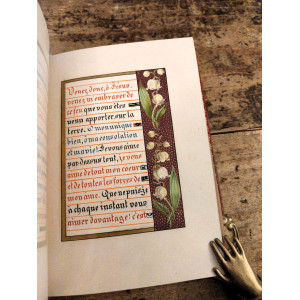 Venez donc, ô Jésus,
venez m'embraser de
ce feu que vous êtes
venu apporter, sur la
terre. O mon unique
bien, ô ma consolation
et ma vie! Je vous aime
par-dessus tout, je vous
aime de tout mon cœur
et de toutes les forces de
mon âme. Que ne puis-je
a chaque instant vous
aimer davantage! c'est